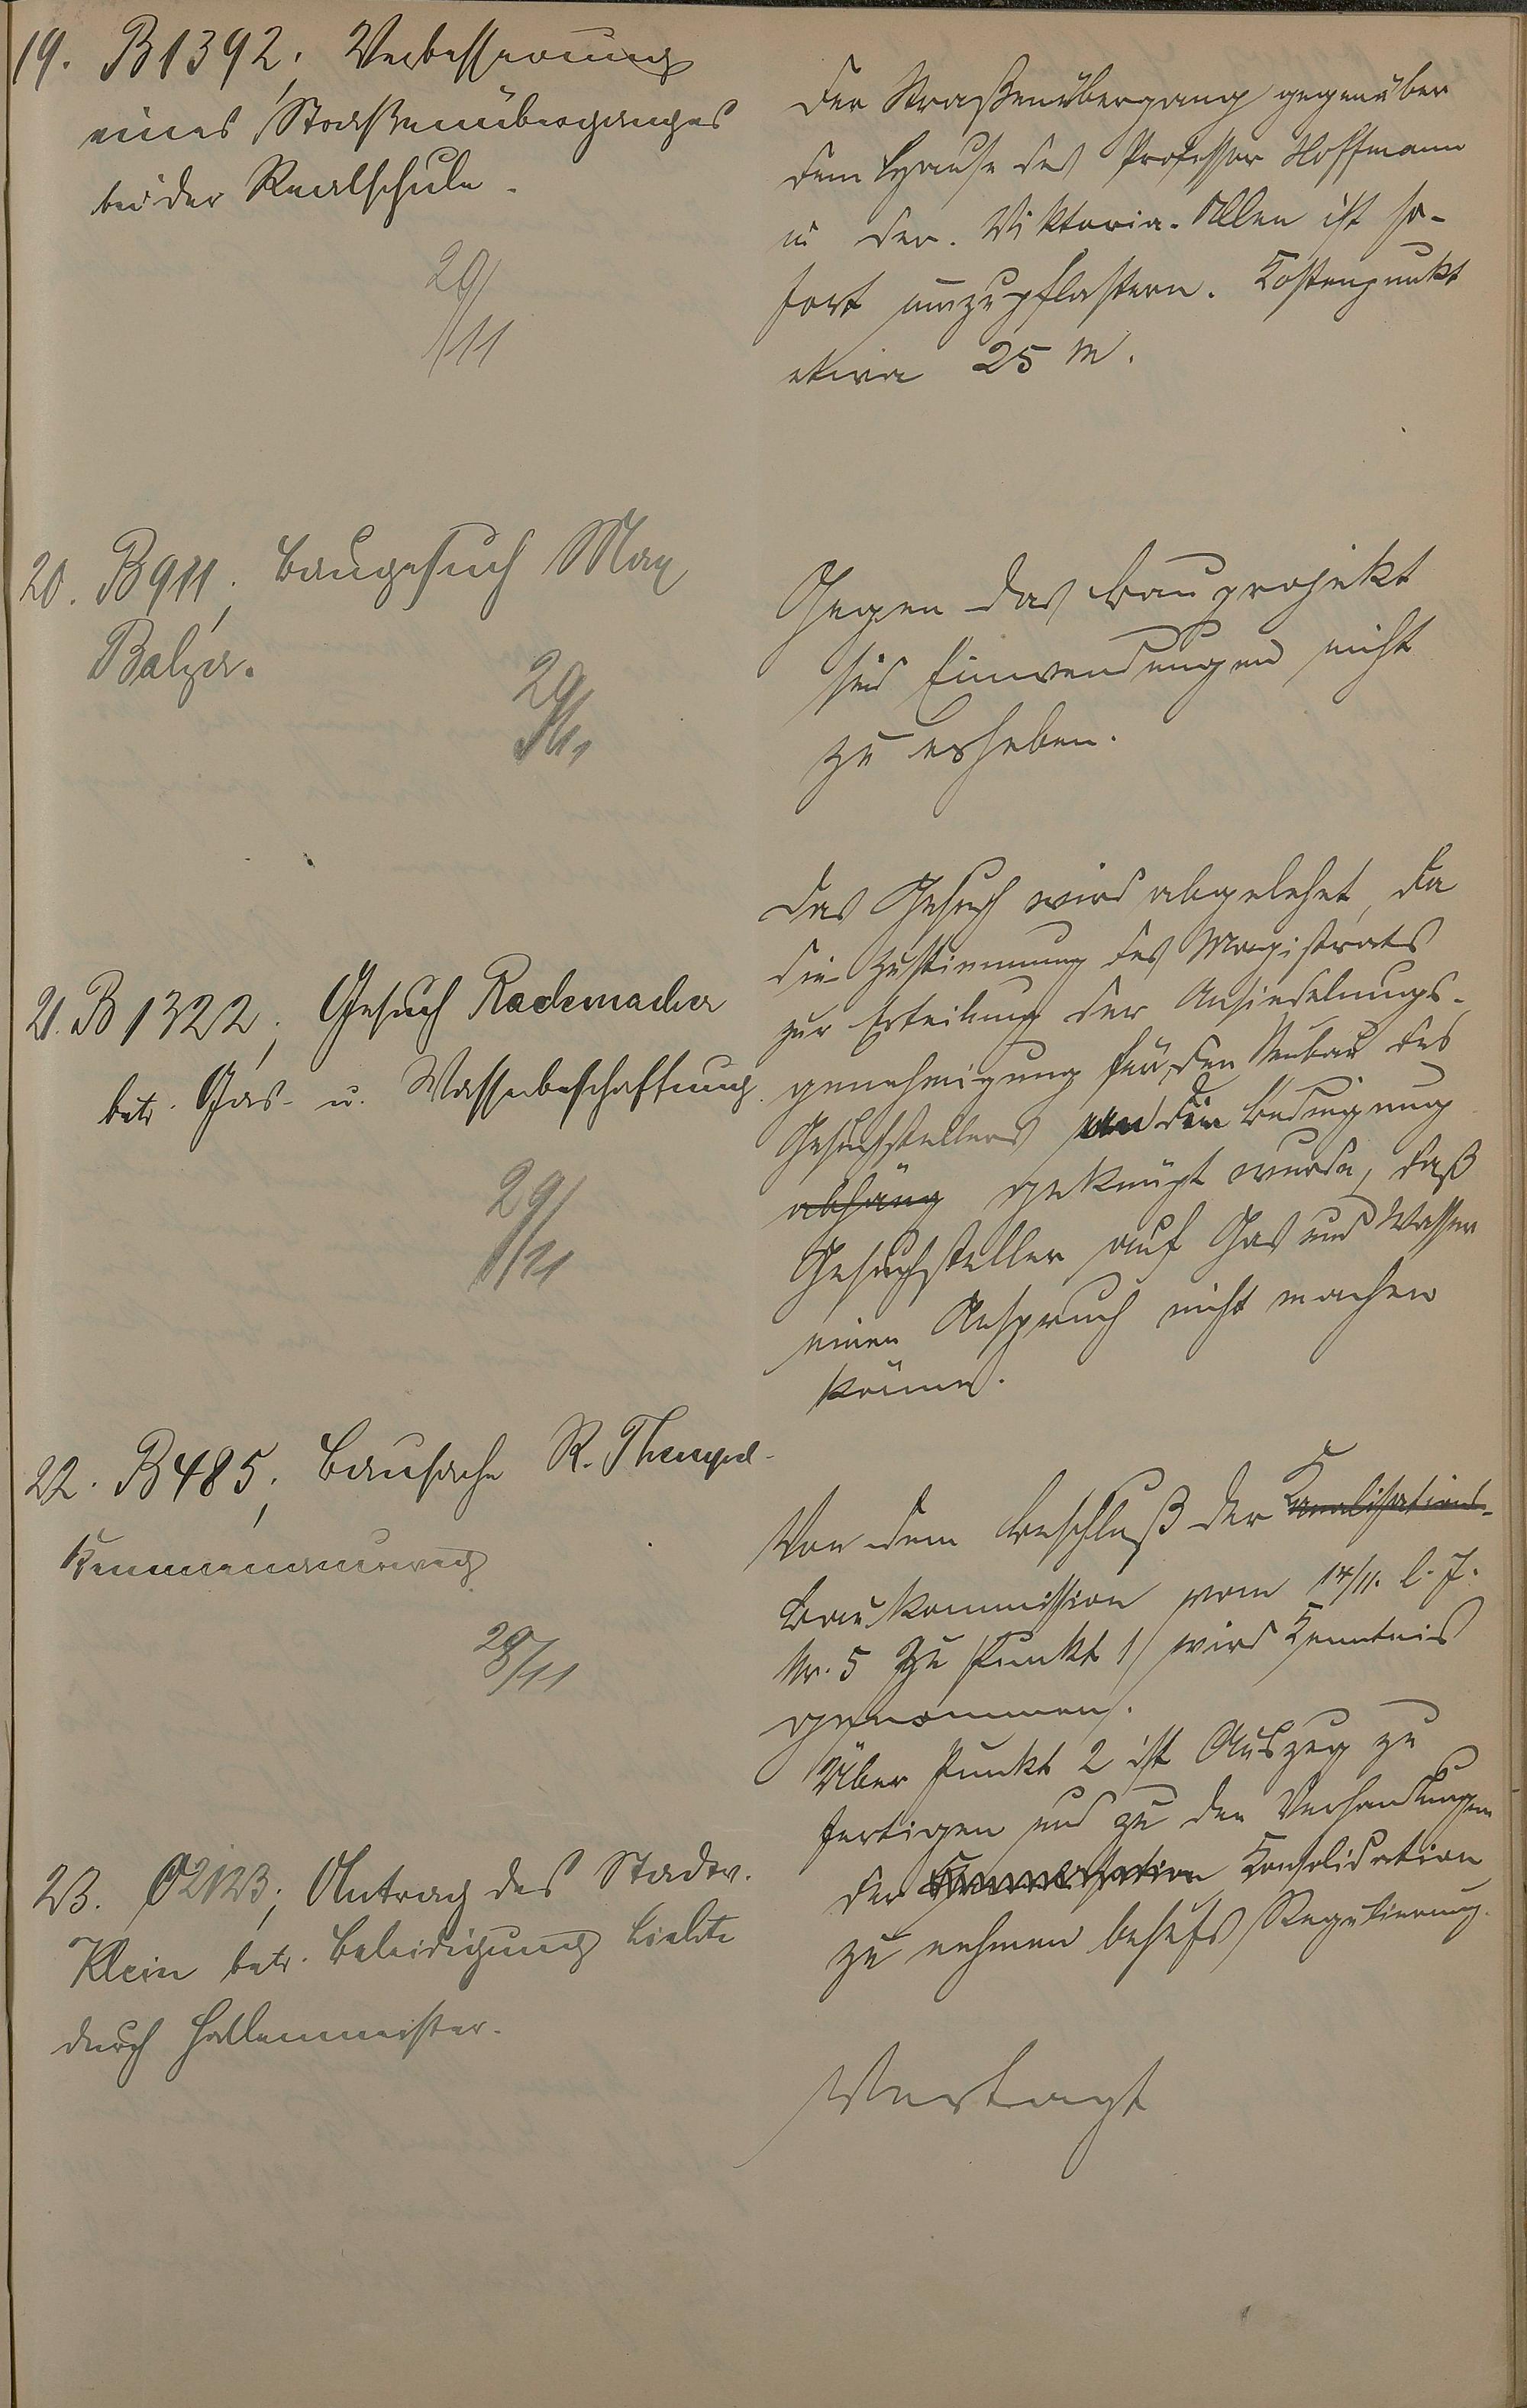 19. B 1392; Verbesserung
eines Straßenüberganges
bei der Realschule.
29/11
Der Straßenübergang gegenüber
dem Hause des Professor Hoffmann
in der Viktoria-Allee ist so-
fort umzupflastern. Kostenpunkt
etwa 25 M.
20. B 911; Baugesuch Max
Balzer.
29/11
Gegen das Bauprojekt
sind Einwendungen nicht
zu erheben.
21. B 1322; Gesuch Rademacher
betr. Gas- u. Wasserbeschaffung.
29/11
Das Gesuch wird abgelehnt, da
die Zustimmung des Magistrats
zur Erteilung der Ansiedelungs-
genehmigung für den Neubau des
Gesuchstellers an die Bedingung
abhäng geknüpft wurde, daß
Gesuchsteller auf Gas und Wasser
einen Anspruch nicht machen
könne.
22. B 485; Bausache R.
29/11
Von dem Beschluß der Kanalisations-
Baukommission vom 14/11. l. J.
Nr. 5 zu Punkt 1/ wird Kenntnis
genommen.
Über Punkt 2 ist Auszug zu
fertigen und zu den Verhandlungen
der Konsolidation
zu nehmen behufs Regulierung.
23. O 2123; Antrag des Stadtv.
Klein betr. Beleidigung
durch Hallenmeister.
Vertagt